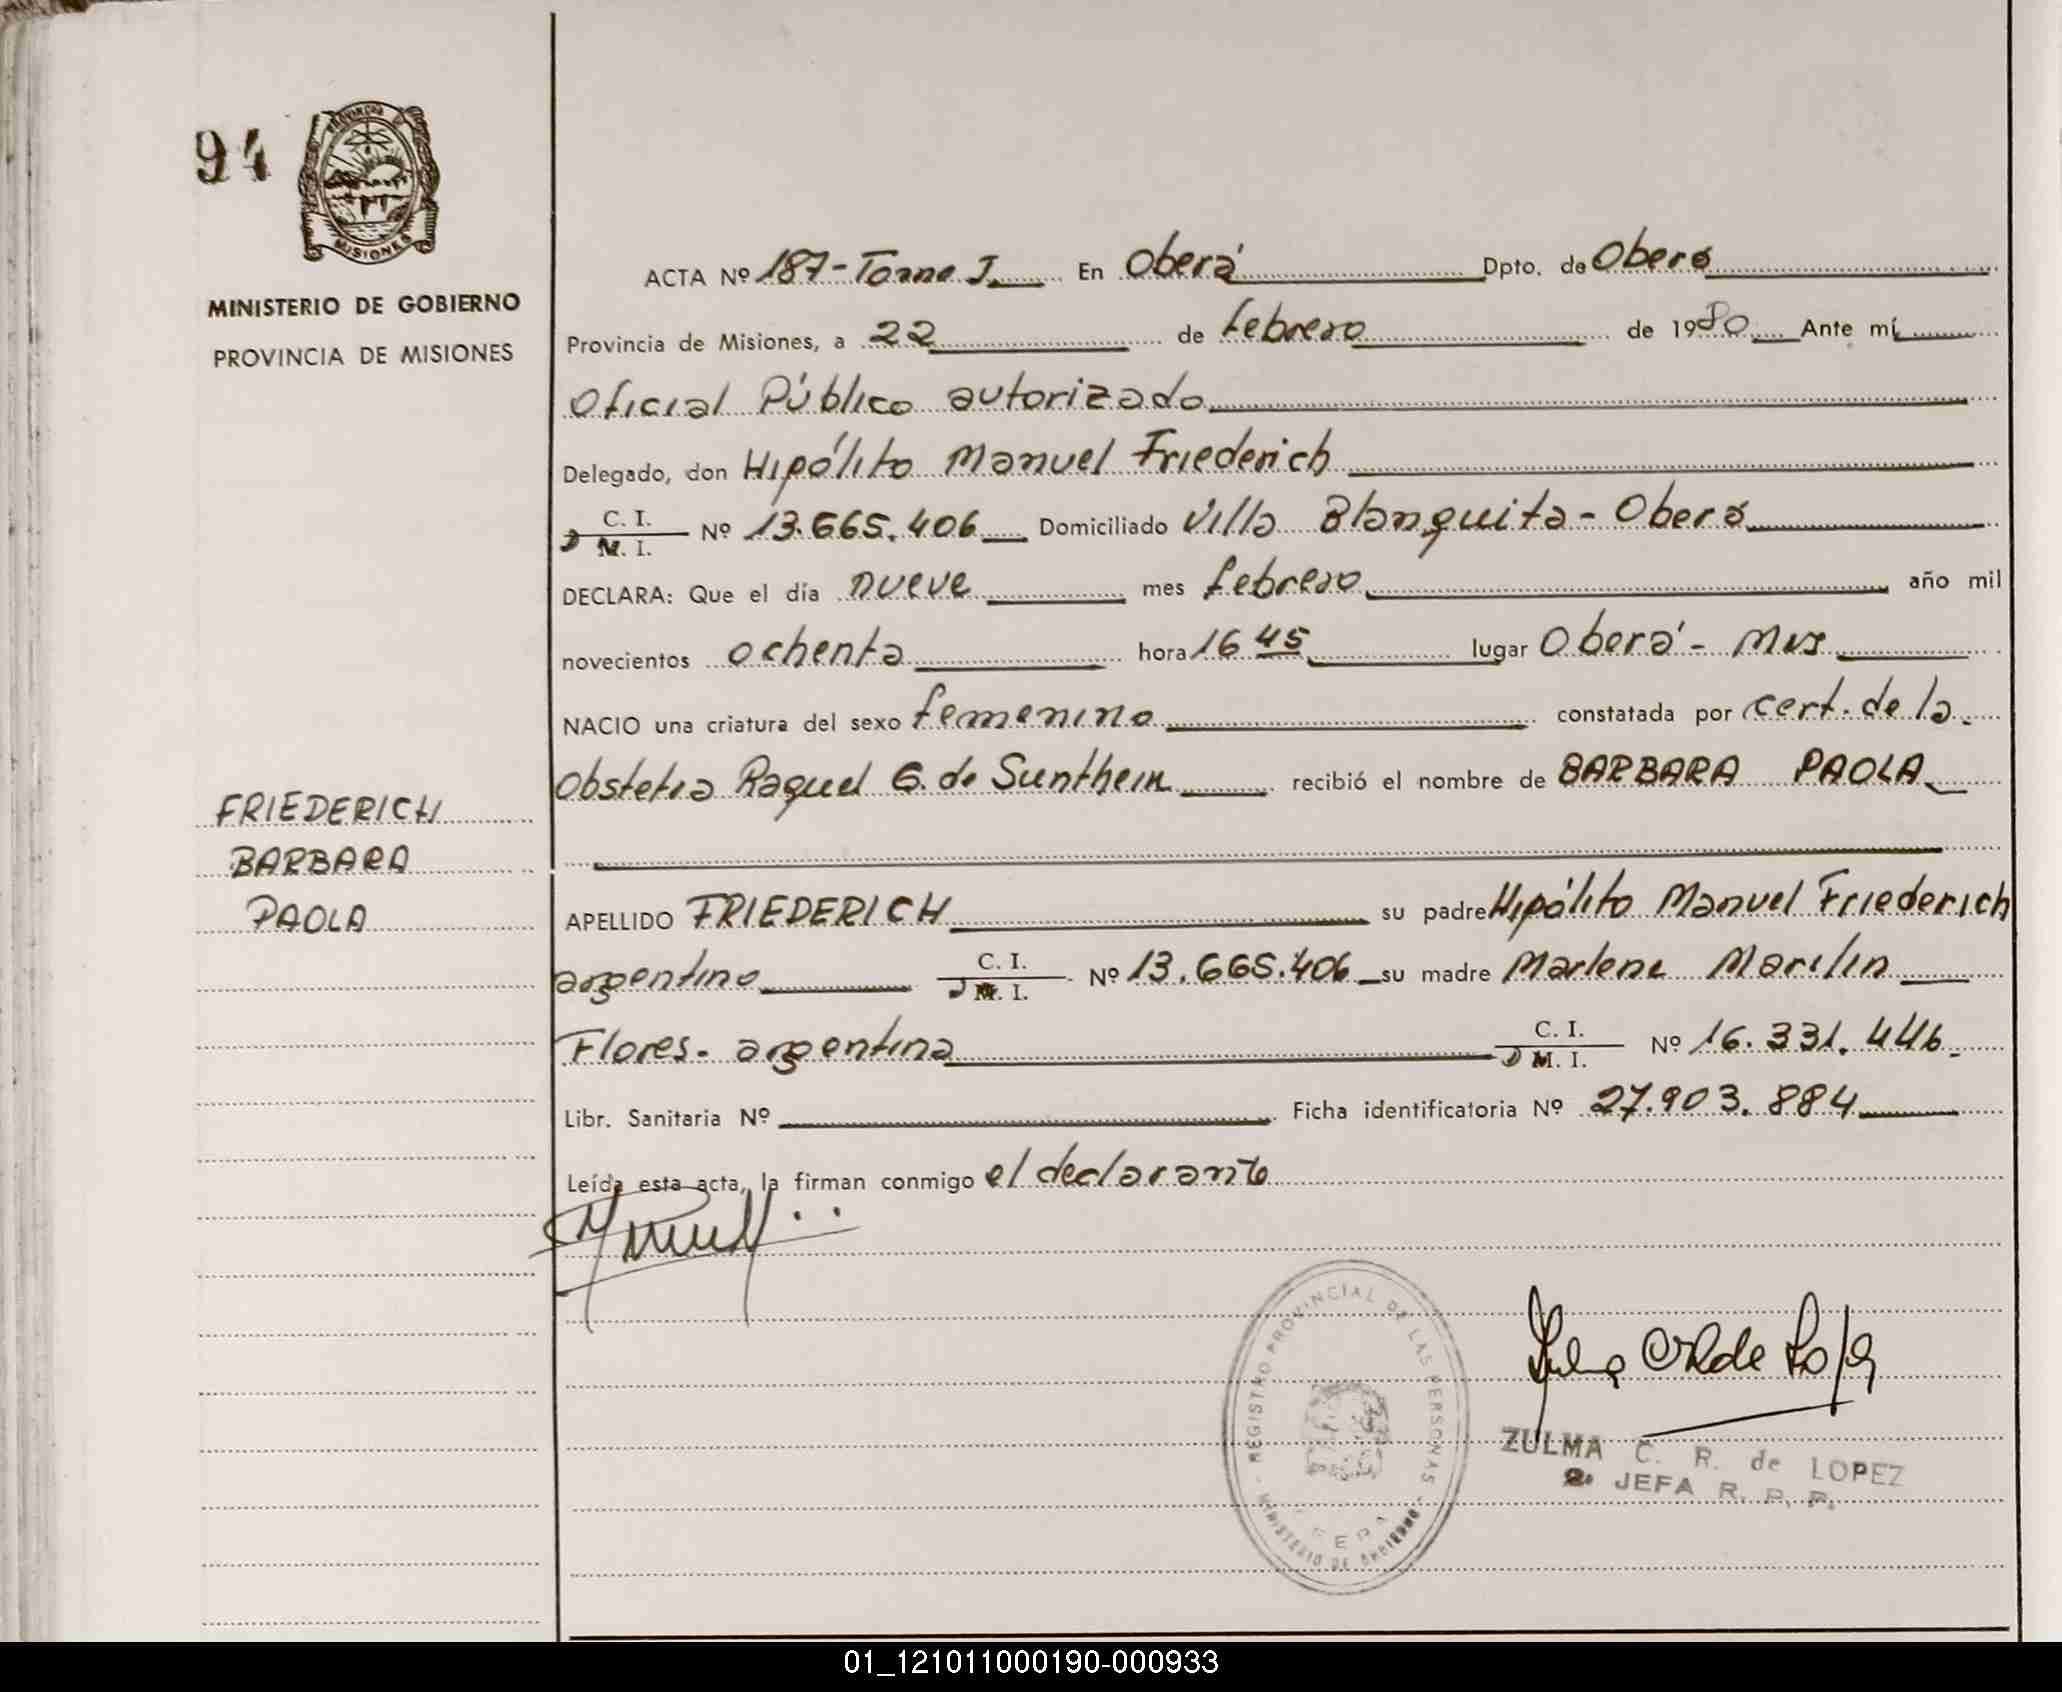 94
PROVINCIA DE
MISIONES
MINISTERIO DE GOBIERNO
PROVINCIA DE MISIONES
ACTA Nº 187-Tomo I En Oberá Dpto. de Oberá
Provincia de Misiones, a 22 de febrero de 1980 Ante mí
Oficial Público autorizado
Delegado, don Hipólito Manuel Friederich
C. I.
D M. I. Nº 13.665.406 Domiciliado Villa Blanquita - Oberá
DECLARA: Que el día nueve mes febrero año mil
novecientos ochenta hora 16 45 lugar Oberá - Mns
NACIO una criatura del sexo femenino constatada por cert. de la
Obstetra Raquel G. de Sunthein recibió el nombre de BARBARA PAOLA
FRIEDERICH
BARBARA
PAOLA
APELLIDO FRIEDERICH su padre Hipólito Manuel Friederich
argentino C. I. D M. I. Nº 13.665.406 su madre Marlene Marilin
Flores - argentina C. I. D M. I. Nº 16.331.446
Libr. Sanitaria Nº Ficha identificatoria Nº 27.903.884
Leída esta acta, la firman conmigo el declarante
REGISTRO PROVINCIAL DE LAS PERSONAS
MINISTERIO DE GOBIERNO
ZULMA C. R. de LOPEZ
2ª JEFA R. P. P.
01_121011000190-000933